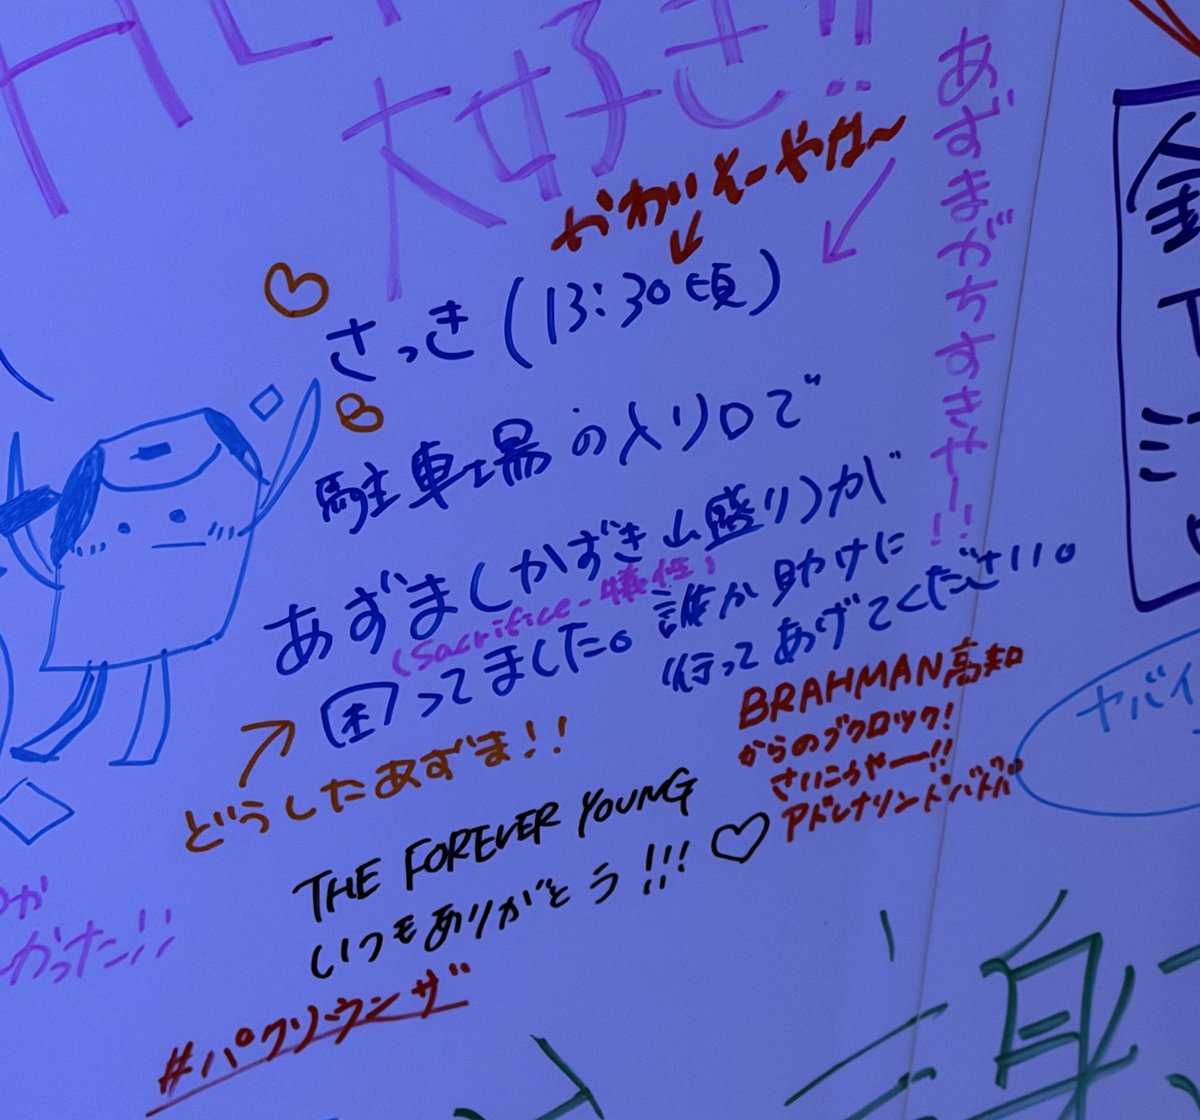 大好き!!
かわいそーやな〜
あずまがちすきやー!!
さっき(13:30頃)
駐車場の入り口で
あずま(かずき山盛り)が
(Sacrifice-犠牲)
困ってました。誰か助けに
行ってあげてください。
どうしたあずま!!
BRAHMAN高知
からのブクロック!
さいこうやー!!
アドレナリンドバドバ
ヤバイ
THE FOREVER YOUNG
いつもありがとう!!!♡
かった!!
#パクソウンザ